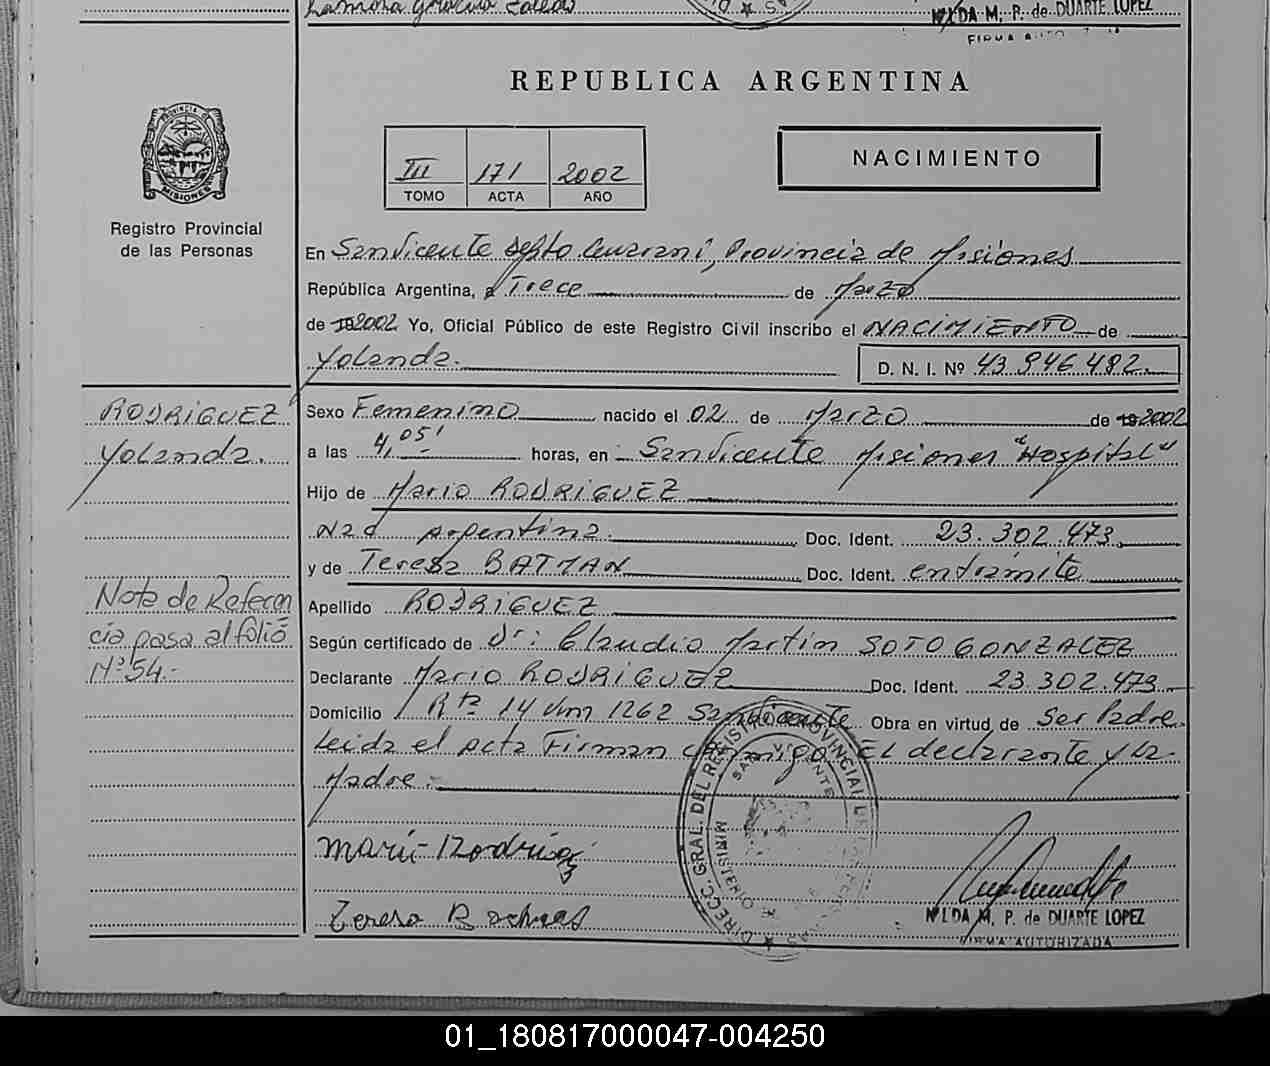 REPUBLICA ARGENTINA
III 171 2002
TOMO ACTA AÑO
NACIMIENTO
PROVINCIA DE MISIONES
Registro Provincial
de las Personas
En San Vicente Depto. Guaraní, Provincia de Misiones
República Argentina, a Trece de Marzo
de 19 2002 Yo, Oficial Público de este Registro Civil inscribo el NACIMIENTO de
Yolanda.
D. N. I. Nº 43.946.482
RODRIGUEZ
Yolanda.
Sexo Femenino nacido el 02 de Marzo de 19 2002
a las 4,05' horas, en San Vicente Misiones "Hospital"
Hijo de Mario RODRIGUEZ
Nac Argentina. Doc. Ident. 23.302.473
y de Teresa Doc. Ident. entramite
Apellido RODRIGUEZ
Nota de Referen
cia pasa al folio
Nº 54.-
Según certificado de Dr: Claudio Martin SOTO GONZALEZ
Declarante Mario RODRIGUEZ Doc. Ident. 23.302.473
Domicilio Rta 14 Km 1262 San Vicente Obra en virtud de Ser Padre.
Leida el Acta Firman conmigo El declarante y la
Madre.
DIRECC. GRAL. DEL REGISTRO PROVINCIAL DE LAS PERSONAS
SAN VICENTE
MINISTERIO DE
Teresa
NILDA M. P. de DUARTE LOPEZ
FIRMA AUTORIZADA
01_180817000047-004250